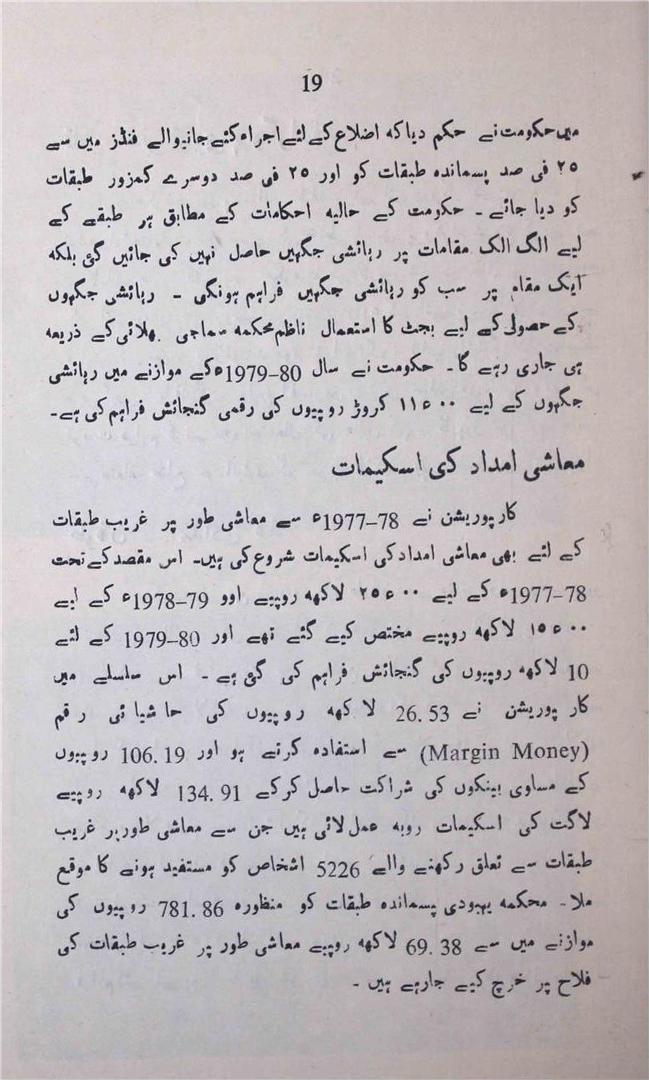 19
میں حکومت نے حکم دیا کہ اضلاع کے لئے اجراء کئے جانیوالے فنڈز میں سے
۲۵ فی صد پسماندہ طبقات کو اور ۲۵ فی صد دوسرے کمزور طبقات
کو دیا جائے ۔ حکومت کے حالیہ احکامات کے مطابق ہر طبقے کے
لیے الگ الگ مقامات پر رہائشی جگہیں حاصل نہیں کی جائیں گی بلکہ
ایک مقام پر سب کو رہائشی جگہیں فراہم ہونگی ۔ رہائشی جگہوں
کے حصولی کے لیے بجٹ کا استعمال ناظم محکمہ سماجی بھلائی کے ذریعہ
ہی جاری رہے گا ۔ حکومت نے سال 80–1979ء کے موازنے میں رہائشی
جگہوں کے لیے ۰۰ء۱۱ کروڑ روپیوں کی رقمی گنجائش فراہم کی ہے ۔
معاشی امداد کی اسکیمات
کارپوریشن نے 78–1977ء سے معاشی طور پر غریب طبقات
کے لئے بھی معاشی امداد کی اسکیمات شروع کی ہیں ۔ اس مقصد کے تحت
78–1977ء کے لیے ۰۰ء۲۵ لاکھ روپیے اوو 79–1978ء کے لیے
۰۰ء۱۵ لاکھ روپیے مختص کیے گئے تھے اور 80–1979 کے لئے
10 لاکھ روپیوں کی گنجائش فراہم کی گئی ہے ۔ اس سلسلے میں
کارپوریشن نے 26.53 لاکھ روپیوں کی حاشیائی رقم
(Margin Money) سے استفادہ کرتے ہو اور 106.19 روپیوں
کے مساوی بینکوں کی شراکت حاصل کرکے 134.91 لاکھ روپیے
لاگت کی اسکیمات روبہ عمل لائی ہیں جن سے معاشی طور پر غریب
طبقات سے تعلق رکھنے والے 5226 اشخاص کو مستفید ہونے کا موقع
ملا ۔ محکمہ بہبودی پسماندہ طبقات کو منظورہ 781.86 روپیوں کی
موازنے میں سے 69.38 لاکھ روپیے معاشی طور پر غریب طبقات کی
فلاح پر خرچ کیے جارہے ہیں ۔